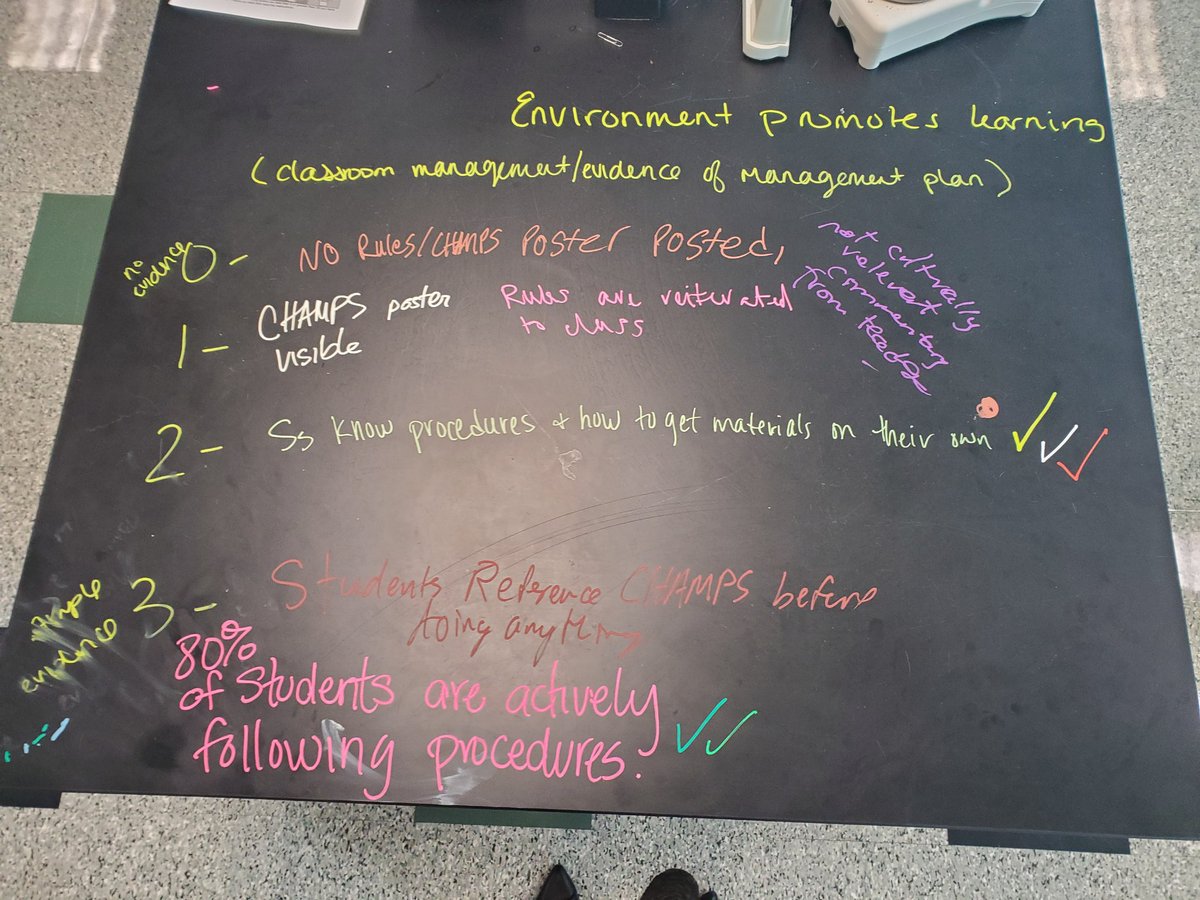 Environment promotes learning
(classroom management/evidence of management plan)
no
evidence
0 - NO Rules/CHAMPS Poster Posted,
not culturally
relevent
commentary
from teacher
1 - CHAMPS poster
visible
Rules are reiterated
to class
2 - Ss know procedures + how to get materials on their own
evidence
3 - Students Reference CHAMPS before
doing anything
80%
of Students are actively
following procedures.